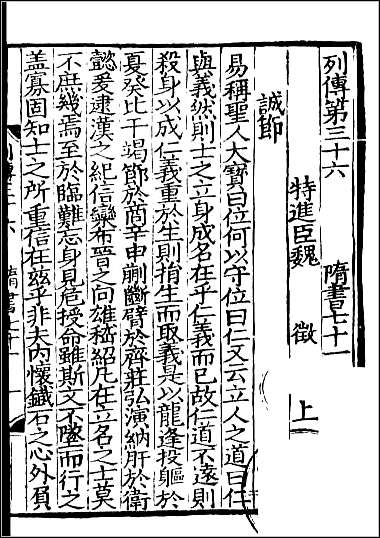 列傳第三十六 隋書七十一
特進臣魏 徵 上
誠節
易稱聖人大寶曰位何以守位曰仁又云立人之道曰仁
與義然則士之立身成名在乎仁義而已故仁道不遠則
殺身以成仁義重於生則捐生而取義是以龍逢投軀於
夏癸比干竭節於商辛申蒯斷臂於齊莊弘演納肝於衛
懿爰逮漢之紀信欒布晉之向雄嵇紹凡在立名之士莫
不庶幾焉至於臨難忘身見危授命雖斯文不墜而行之
蓋寡固知士之所重信在兹乎非夫内懷鐵石之心外負